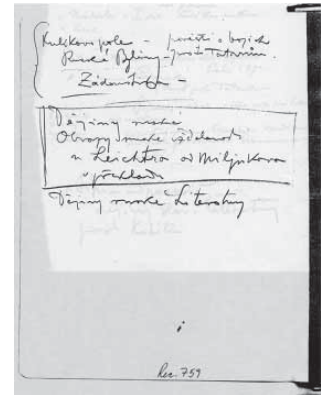 Kulikovo pole - pověsti o bojích
Ruské Byliny - proti Tatarům.
Zádonština -
Dějiny ruské
Obrazy ruské vzdělanosti
u Leichtra od Miljukova
v překladu
Dějiny ruské Literatury
i
Rec. 759